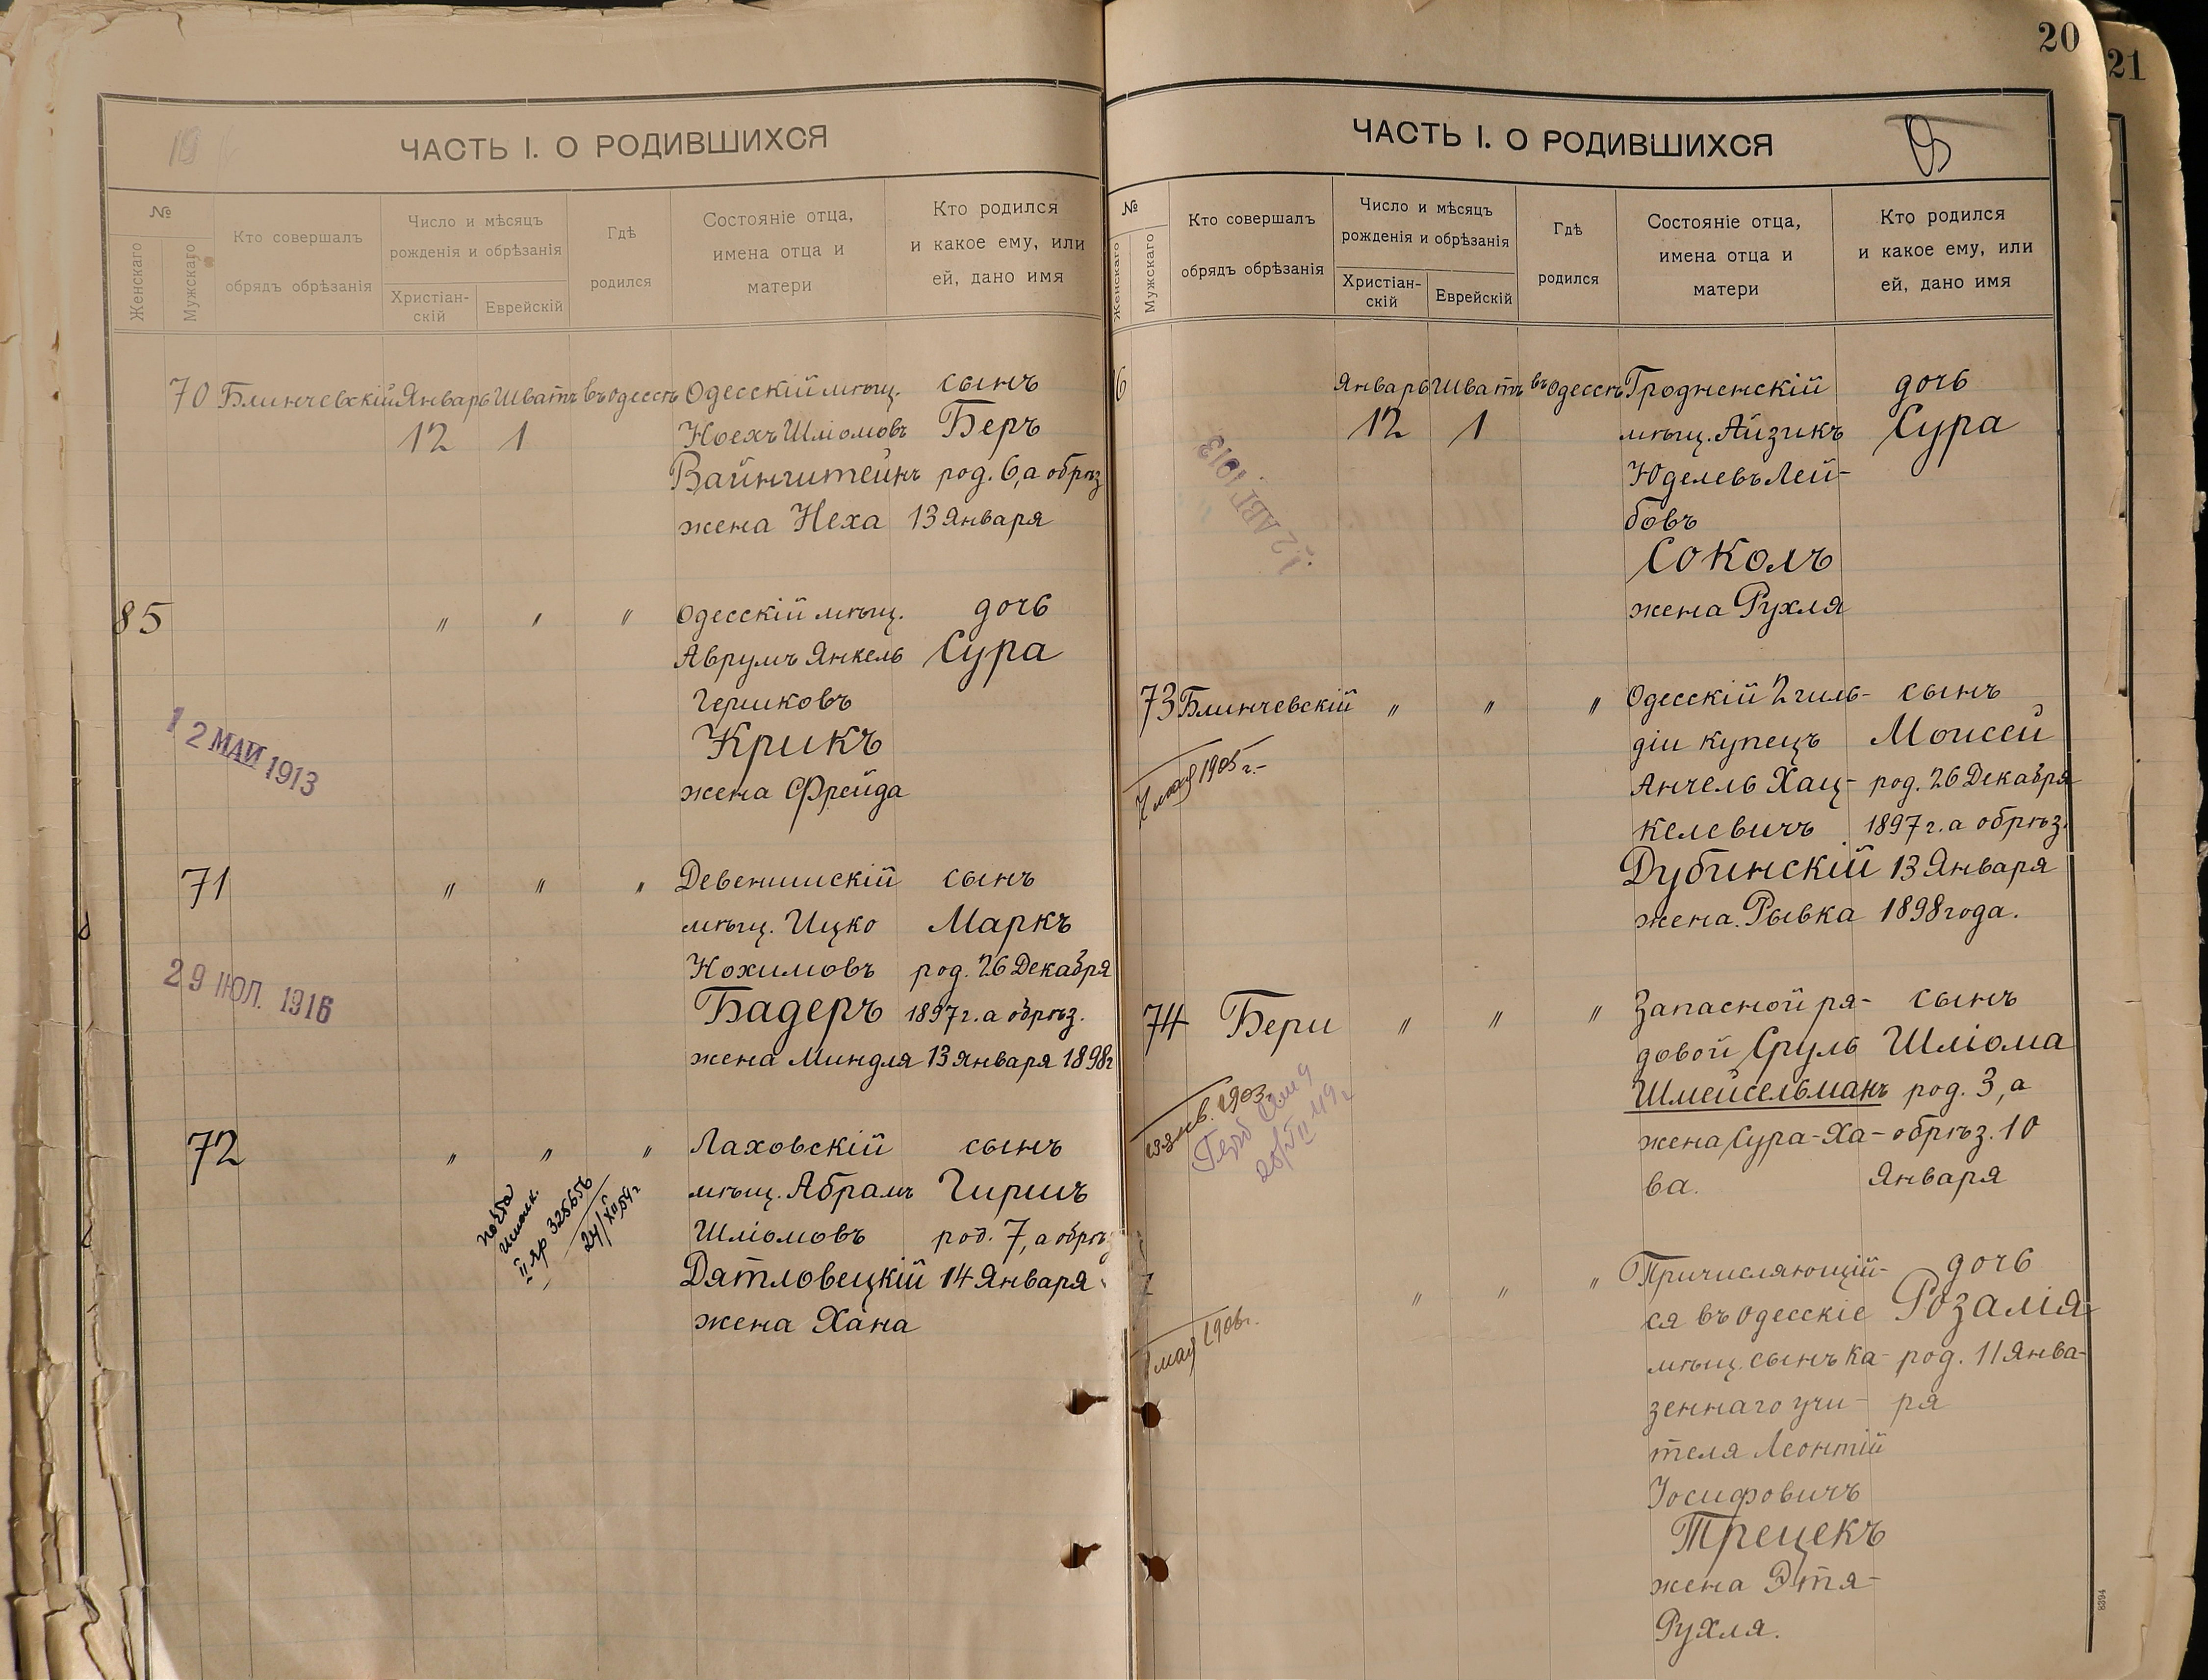 ЧАСТЬ I. О РОДИВШИХСЯ
№
Женскаго
Мужскаго
Кто совершалъ
обрядъ обрѣзанія
Число и мѣсяцъ
рожденія и обрѣзанія
Христіан-
скій
Еврейскій
Гдѣ
родился
Состояніе отца,
имена отца и
матери
Кто родился
и какое ему, или
ей, дано имя
70 Блинчевскій Январь Шватъ въ Одессѣ Одесскій мѣщ. сынъ
12 1 Ноехъ Шліомовъ Беръ
Вайнштейнъ род. 6, а обрѣз
жена Неха 13 Января
85 〃 〃 〃 Одесскій мѣщ. дочь
Аврумъ Янкель Сура
Гершковъ
Крикъ
жена Фрейда
12 МАЙ 1913
71 〃 〃 〃 Девенишскій сынъ
мѣщ. Ицко Маркъ
Нохимовъ род. 26 Декабря
Бадеръ 1897 г. а обрѣз.
жена Миндля 13 Января 1898 г
29 ІЮЛ. 1916
72 〃 〃 〃 Лаховскій сынъ
мѣщ. Абрамъ Гиршъ
Шліомовъ род. 7, а обрѣз
Дятловецкій 14 Января
жена Хана
II яр 325656
24/XII 54 г
20
21
ЧАСТЬ I. О РОДИВШИХСЯ
№
Женскаго
Мужскаго
Кто совершалъ
обрядъ обрѣзанія
Число и мѣсяцъ
рожденія и обрѣзанія
Христіан-
скій
Еврейскій
Гдѣ
родился
Состояніе отца,
имена отца и
матери
Кто родился
и какое ему, или
ей, дано имя
6 Январь Шватъ въ Одессѣ Гродненскій дочь
12 1 мѣщ. Айзикъ Сура
Юделевъ Лей-
бовъ
Соколъ
жена Рухля
12 АВГ 1913
73 Блинчевскій 〃 〃 〃 Одесскій 2 гиль- сынъ
діи купецъ Моисей
Анчель Хац- род. 26 Декабря
келевичъ 1897 г. а обрѣз.
Дубинскій 13 Января
жена. Рывка 1898 года.
мая 1905 г.
74 Бери 〃 〃 〃 Запасной ря- сынъ
довой Сруль Шліома
Шмейсельманъ род. 3, а
жена Сура-Ха- обрѣз. 10
ва. Января
янв. 1903 г.
7 〃 〃 〃 Причисляющій- дочь
ся въ Одесскіе Розалія
мѣщ. сынъ ка- род. 11 Янва-
зеннаго учи- ря
теля Леонтій
Іосифовичъ
Трецекъ
жена Этя-
Рухля.
мая 1906 г.
8394